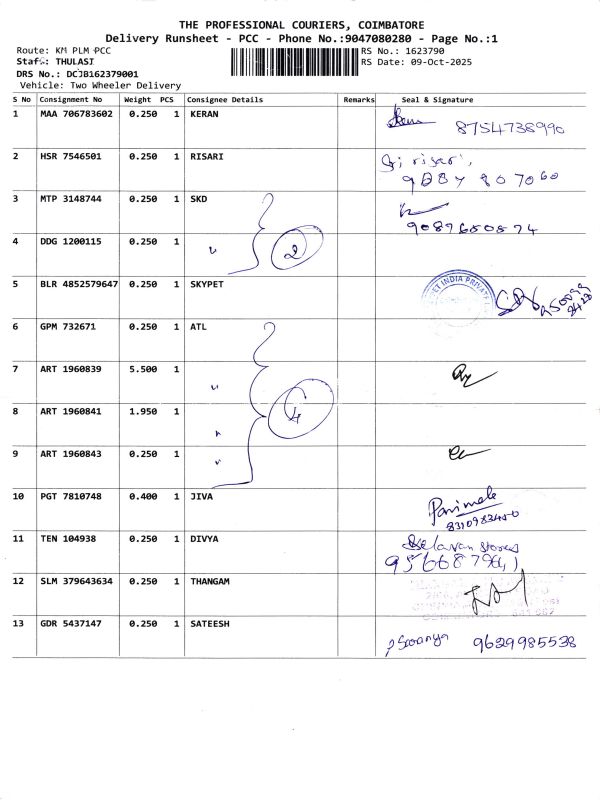 THE PROFESSIONAL COURIERS, COIMBATORE
Delivery Runsheet - PCC - Phone No.:9047080280 - Page No.:1
Route: KM PLM PCC
RS No.: 1623790
Staff: THULASI
RS Date: 09-Oct-2025
DRS No.: DCJB162379001
Vehicle: Two Wheeler Delivery
S No Consignment No Weight PCS Consignee Details Remarks Seal & Signature
1 MAA 706783602 0.250 1 KERAN
8754738990
2 HSR 7546501 0.250 1 RISARI Sri risari,
3 MTP 3148744 0.250 1 SKD
9089680874
4 DDG 1200115 0.250 1 2
5 BLR 4852579647 0.250 1 SKYPET
INDIA PRIVATE
6 GPM 732671 0.250 1 ATL
7 ART 1960839 5.500 1
8 ART 1960841 1.950 1 4
9 ART 1960843 0.250 1
10 PGT 7810748 0.400 1 JIVA
8310983450
11 TEN 104938 0.250 1 DIVYA stores
12 SLM 379643634 0.250 1 THANGAM
13 GDR 5437147 0.250 1 SATEESH
9629985538